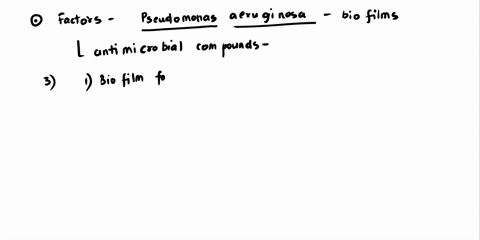 ⊙ Factors - Pseudomonas aeruginosa - bio films
L antimicrobial compounds -
3) 1) Bio film fo